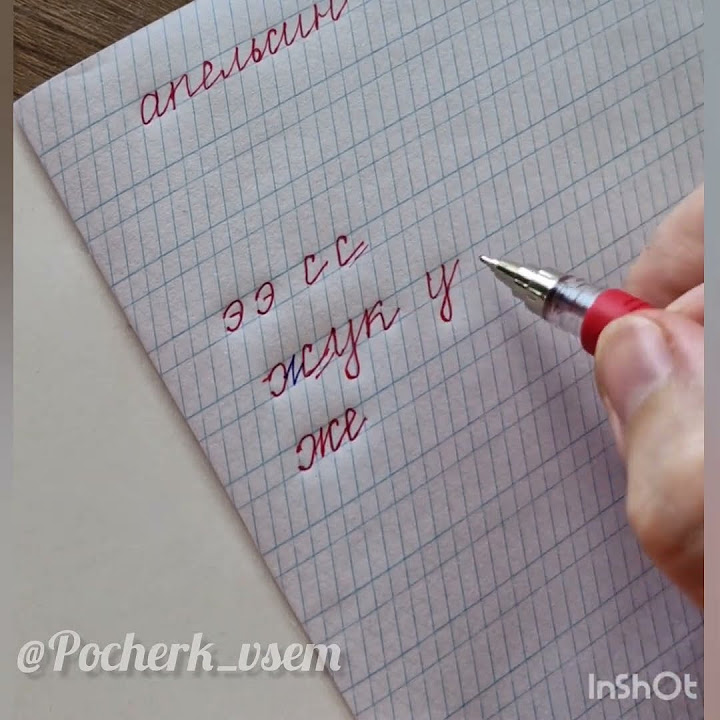 апельсин
э э с с
жук у
же
@Pocherk_vsem
InShOt